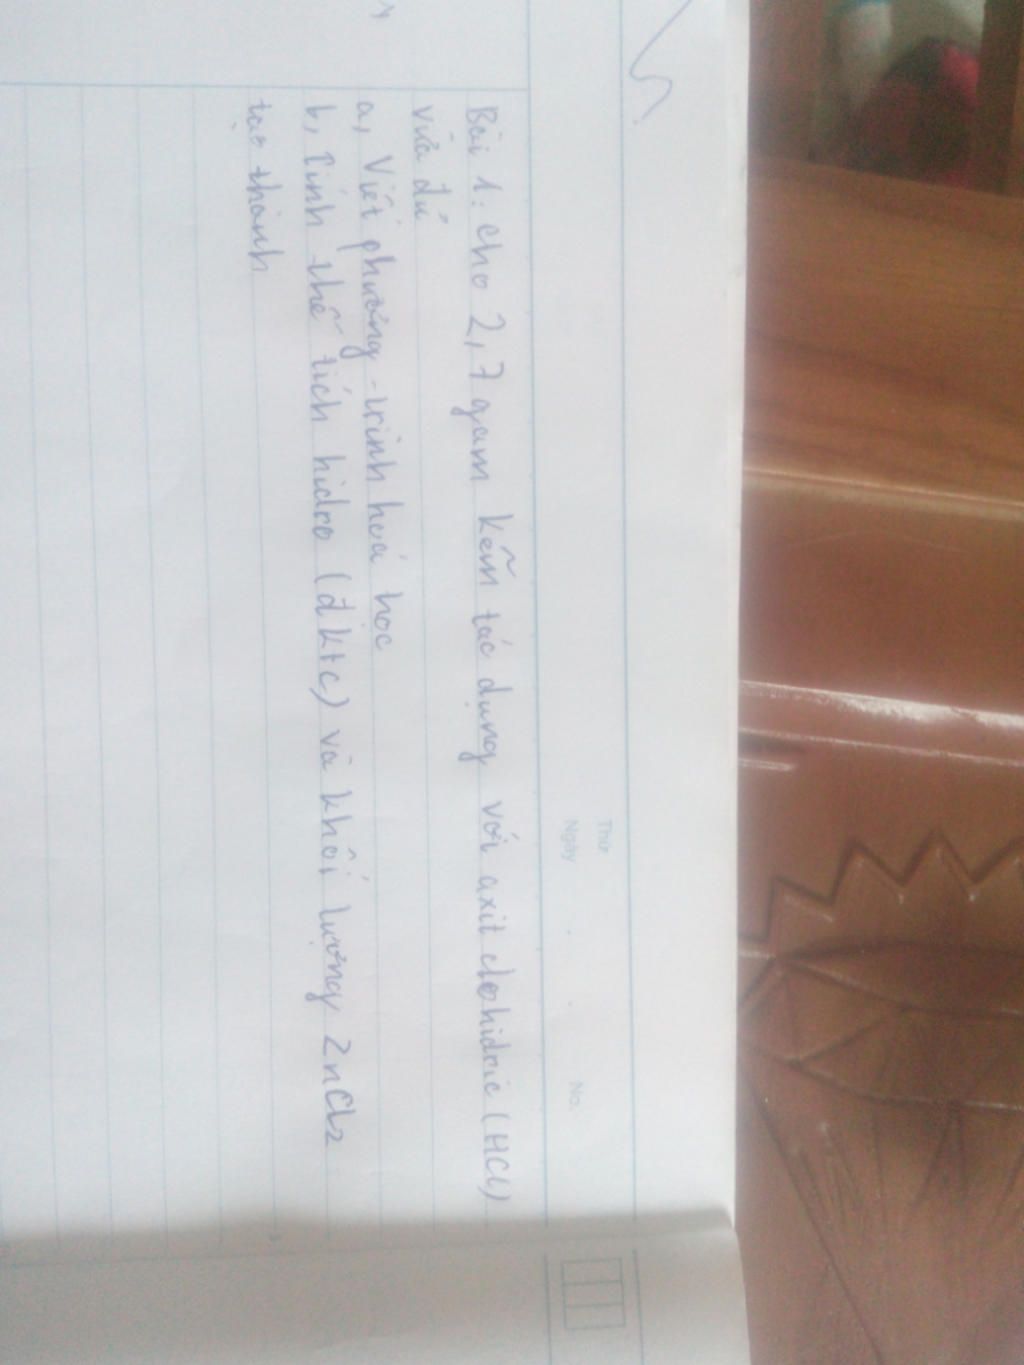 Thứ
Ngày . . No.
Bài 1: cho 2,7 gam kẽm tác dụng với axit clohidric (HCl)
vừa đủ
a, Viết phương trình hoá học
b, Tính thể tích hidro (đktc) và khối lượng ZnCl2
tạo thành